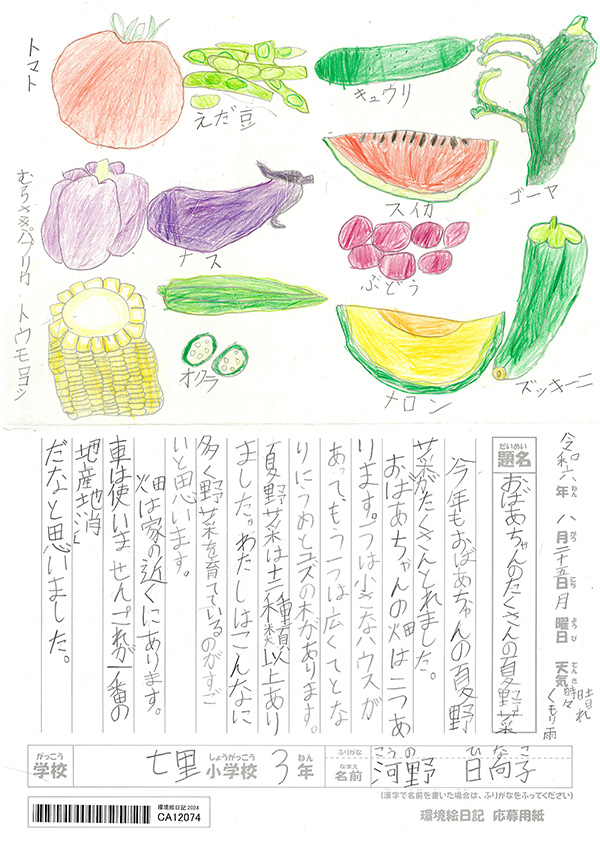 トマト
えだ豆
キュウリ
ゴーヤ
むらさきパプリカ
ナス
スイカ
ぶどう
トウモロコシ
オクラ
メロン
ズッキーニ
令和六年八月二十五日月曜日 天気 晴れ時々くもり雨
ねん がつ にち ようび てんき
だいめい
題名 おばあちゃんのたくさんの夏野菜
今年もおばあちゃんの夏野
菜がたくさんとれました。
おばあちゃんの畑は二つあ
ります。一つは小さなハウスが
あって、もう一つは広くてとな
りにうめとユズの木があります。
夏野菜は十二種類以上あり
ました。わたしはこんなに
多く野菜を育てているのがすご
いと思います。
畑は家の近くにあります。
車は使いません。これが一番の
「地産地消」
だなと思いました。
がっこう しょうがっこう ねん
学校 七里 小学校 3年
ふりがな こうの ひなこ
なまえ
名前 河野 日向子
(漢字で名前を書いた場合は、ふりがなをふってください)
環境絵日記 2024
CA12074
環境絵日記 応募用紙